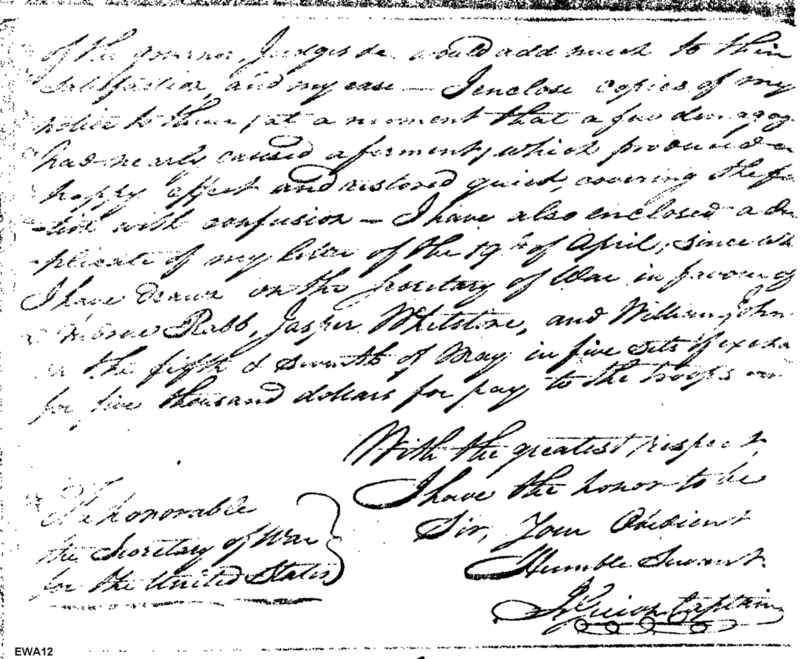 of the governor, Judges &c. would add much to their
satisfaction, and my ease — I enclose copies of my
notice to them (at a moment that a few demagog
had nearly caused a ferment) which produced a
happy effect and restored quiet, covering the fa
-tion with confusion — I have also enclosed a du
-plicate of my letter of the 19th of April, since wh
I have drawn on the Secretary of War in favour of
Rabb, Jasper Whitstine, and William John
the fifth & seventh of May in five sets of excha
for five thousand dollars for pay to the troops
With the greatest respect
I have the honor to be
Sir, Your Obedient
Humble Servant.
Guion Captain
The honorable
the Secretary of War
for the United States
EWA12